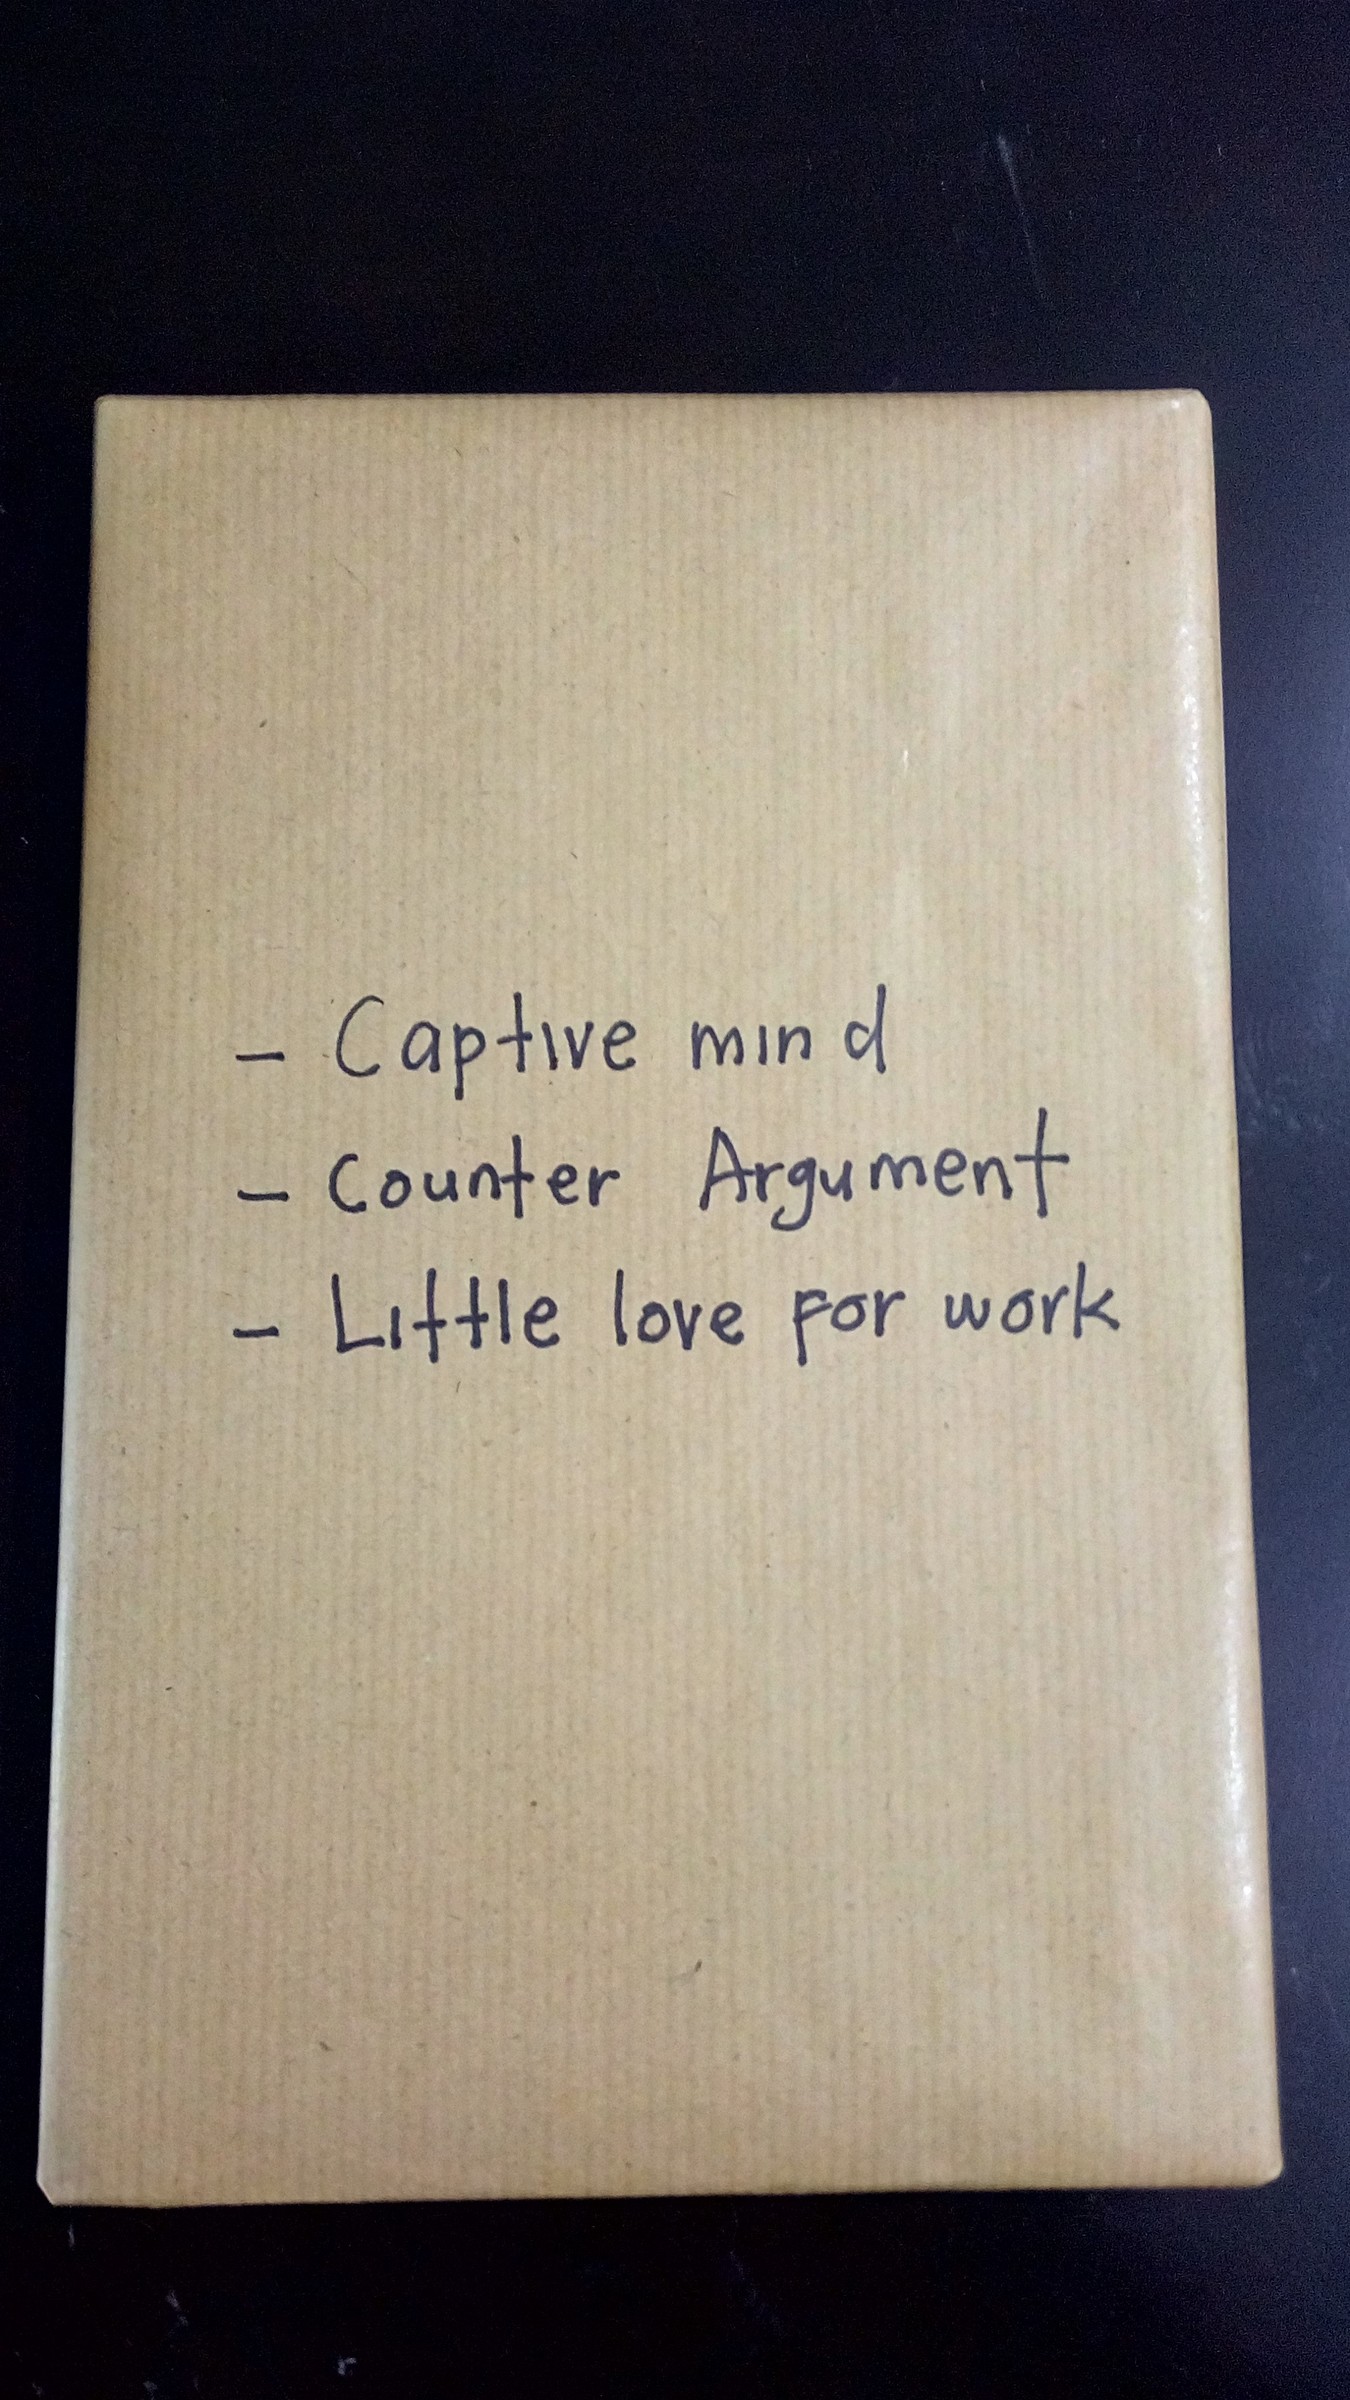 - Captive mind
- Counter Argument
- Little love for work